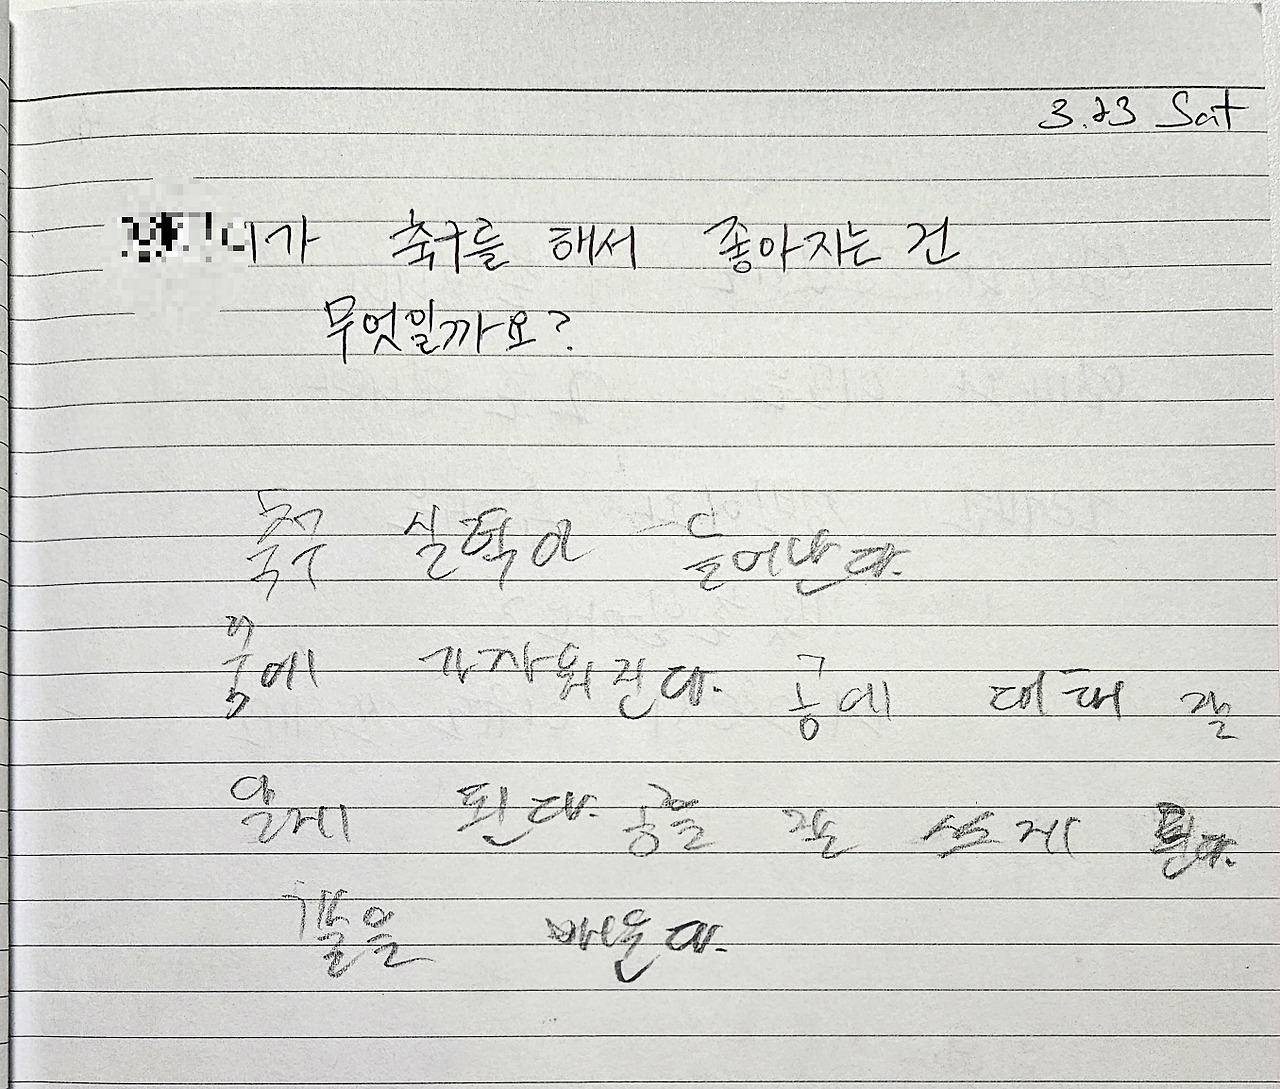 3.23 Sat
이가 축구를 해서 좋아지는 건
무엇일까요?
축구 실력이 늘어난다.
꿈에 가까워진다. 공에 대해 잘
알게 된다. 공을 잘 쓰게 된다.
을 배운다.